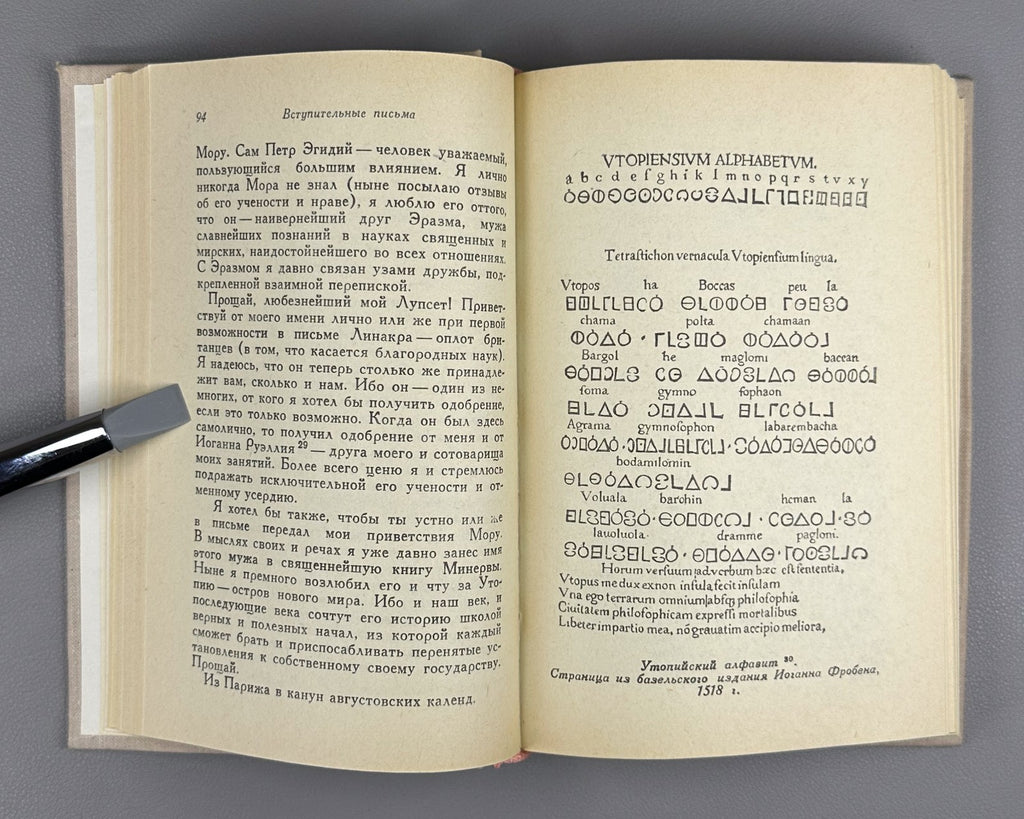 94 Вступительные письма
Мору. Сам Петр Эгидий — человек уважаемый,
пользующийся большим влиянием. Я лично
никогда Мора не знал (ныне посылаю отзывы
об его учености и нраве), я люблю его оттого,
что он — наивернейший друг Эразма, мужа
славнейших познаний в науках священных и
мирских, наидостойнейшего во всех отношениях.
С Эразмом я давно связан узами дружбы, под-
крепленной взаимной перепиской.
Прощай, любезнейший мой Лупсет! Привет-
ствуй от моего имени лично или же при первой
возможности в письме Линакра — оплот бри-
танцев (в том, что касается благородных наук).
Я надеюсь, что он теперь столько же принадле-
жит вам, сколько и нам. Ибо он — один из не-
многих, от кого я хотел бы получить одобрение,
если это только возможно. Когда он был здесь
самолично, то получил одобрение от меня и от
Иоганна Руэллия 29 — друга моего и сотоварища
моих занятий. Более всего ценю я и стремлюсь
подражать исключительной его учености и от-
менному усердию.
Я хотел бы также, чтобы ты устно или же
в письме передал мои приветствия Мору.
В мыслях своих и речах я уже давно занес имя
этого мужа в священнейшую книгу Минервы.
Ныне я премного возлюбил его и чту за Уто-
пию — остров нового мира. Ибо и наш век, и
последующие века сочтут его историю школой
верных и полезных начал, из которой каждый
сможет брать и приспосабливать перенятые ус-
тановления к собственному своему государству.
Прощай.
Из Парижа в канун августовских календ.
VTOPIENSIVM ALPHABETVM.
a b c d e f g h i k l m n o p q r s t v x y
Tetrastichon vernacula Vtopiensium lingua.
Vtopos ha Boccas peu la
chama polta chamaan
Bargol he maglomi baccan
soma gymno sophaon
Agrama gymnosophon labarembacha
bodamilomin
Voluala barchin heman la
lauoluola dramme pagloni.
Horum versuum ad verbum hæc est sententia.
Vtopus me dux ex non insula fecit insulam
Vna ego terrarum omnium absq; philosophia
Ciuitatem philosophicam expressi mortalibus
Libeter impartio mea, nō grauatim accipio meliora,
Утопийский алфавит 30.
Страница из базельского издания Иоганна Фробена,
1518 г.